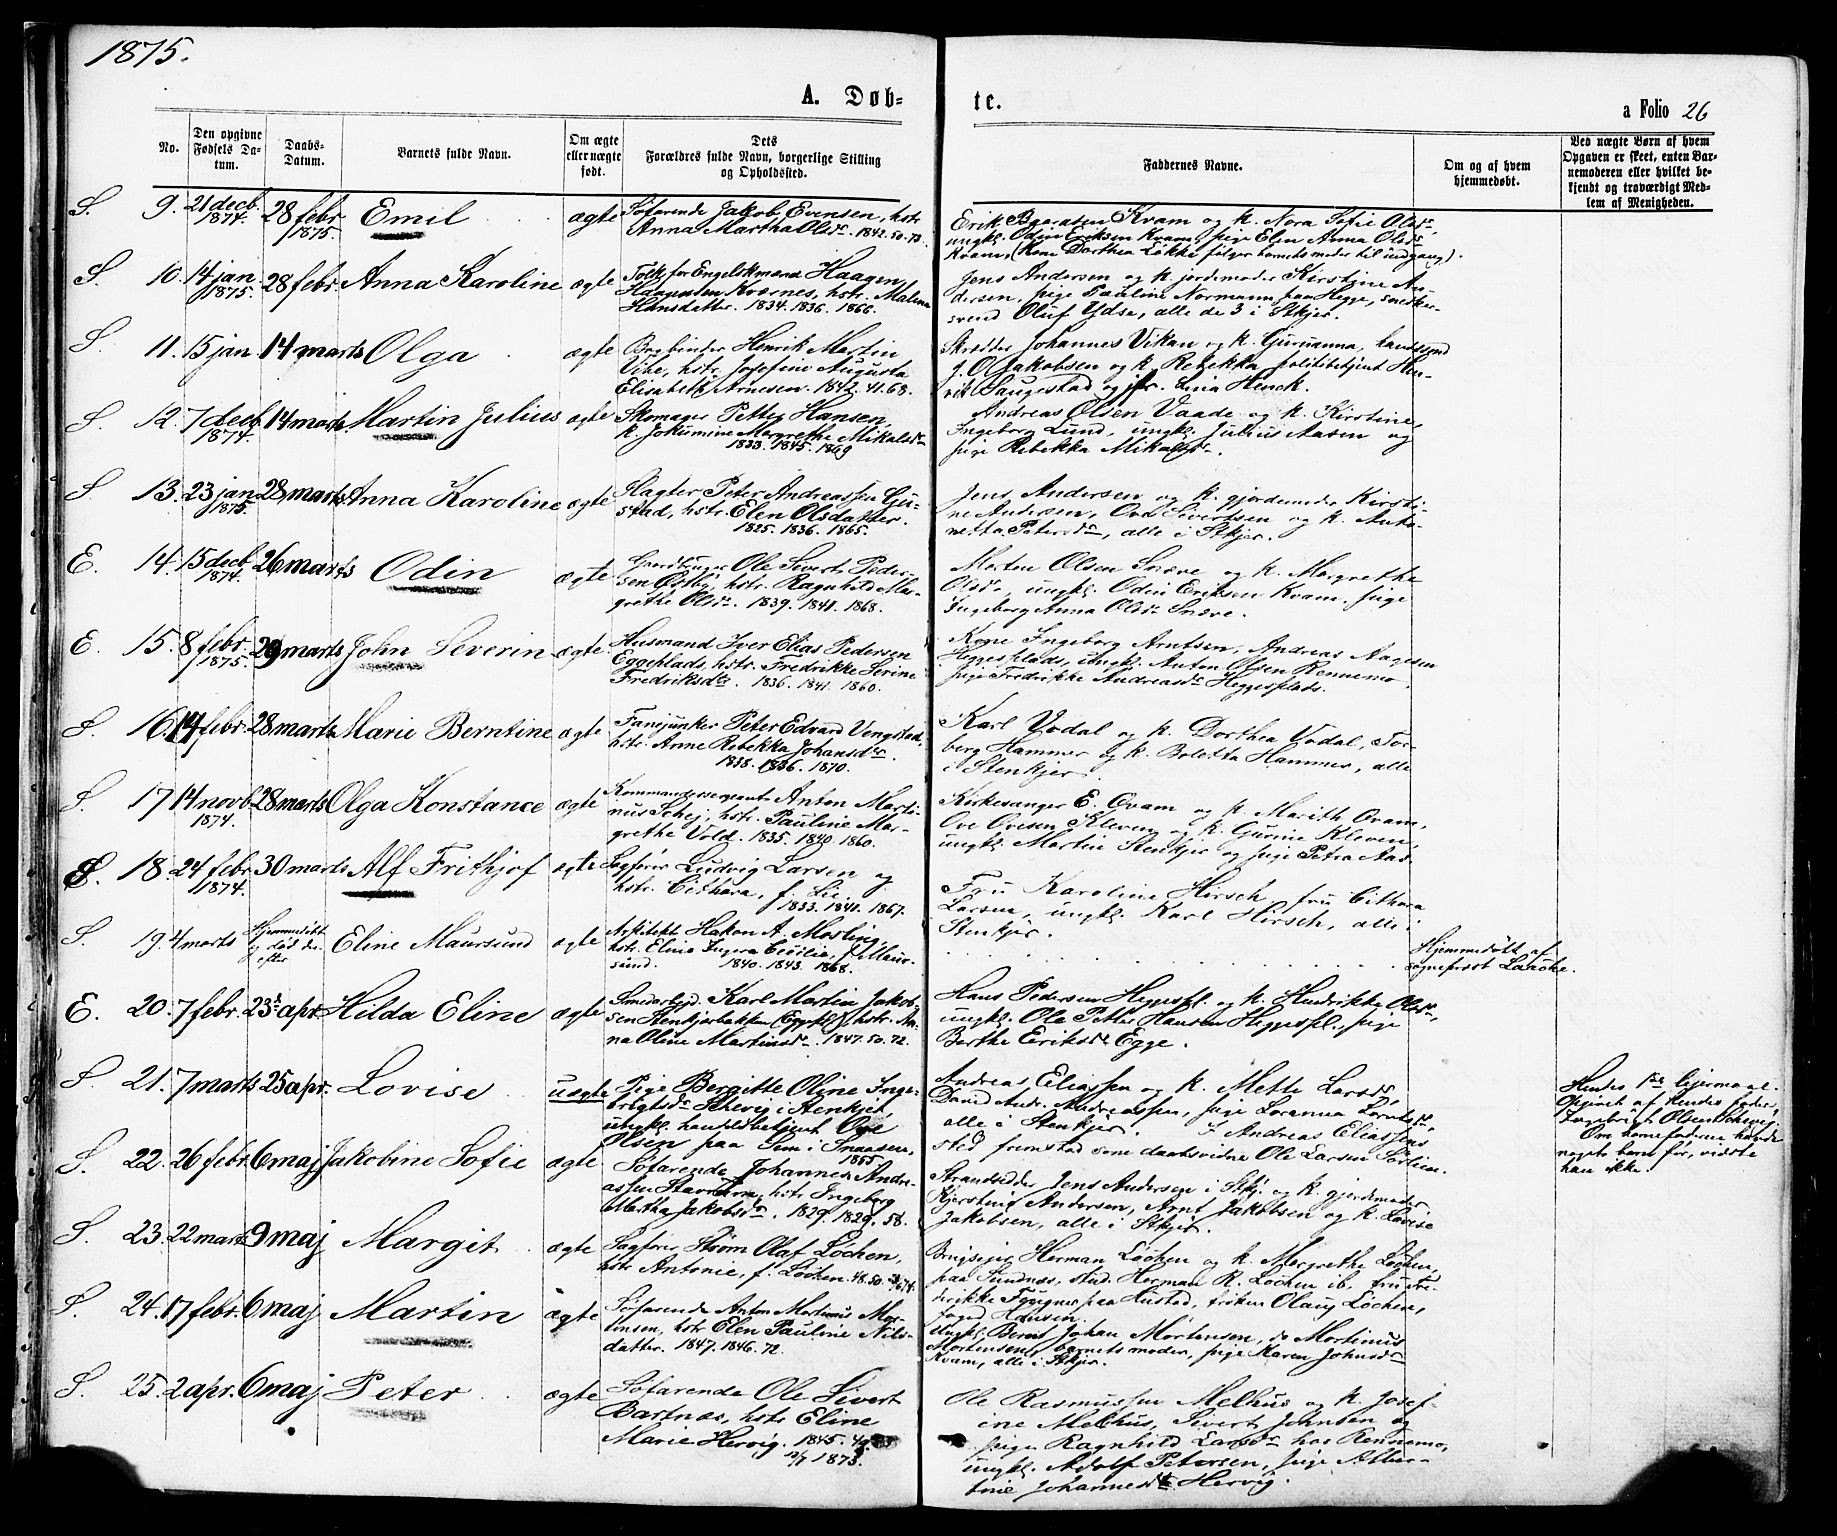 1875.
A. Døb-
te.
a Folio 26
No.
Den opgivne
Fødsels Da-
tum.
Daabs-
Datum.
Barnets fulde Navn.
Om ægte
eller uægte
født.
Dets
Forældres fulde Navn, borgerlige Stilling
og Opholdssted.
Faddernes Navne.
Om og af hvem
hjemmedøbt.
Ved uægte Børn af hvem
Opgaven er skeet, enten Bar-
nemoderen eller hvilket be-
kjendt og troværdigt Med-
lem af Menigheden.
S. 9. 21 decb. 1874. 28 febr. 1875. Emil ægte
Søfarende Jakob Evensen, hstr.
Anna Martha Olsdr. 1842. 50. 73.
Erik Baardsen Kvam og k. Nora Sofie Olsdr,
ungk. Odin Eriksen Kvam, pige Elen Anna Olsdr
Kvam, (Kone Dorthea Løkke følger barnets moder til indgang).
S. 10. 14 jan. 1875. 28 febr. Anna Karoline ægte
Tolk for Engelskmænd Haagen
Haagensen Kvernes, hstr. Malena
Hansdatter. 1834. 1836. 1866.
Jens Andersen og k. jordemoder Kirstine An-
dersen, pige Pauline Normann paa Hegge, snedker-
svend Oluf Ydse, alle de 3 i Stkjer.
S. 11. 15 jan 14 marts Olga ægte
Bogbinder Henrik Martin
Vibe, hstr. Josefine Augusta
Elisabeth Arnesen. 1842. 41. 68.
Skrædder Johannes Vikan og k. Gurianna,
J. O. Jakobsen og k. Rebekka, politibetjent Hen-
rik Saugestad og jfr. Lina Henck.
S. 12. 7 decb 1874. 14 marts Martin Julius ægte
Skomager Petter Hansen,
k. Jokumine Margrethe Mikalsdr
1833. 1845. 1869
Andreas Olsen Vaade og k. Kirstine,
Ingeborg Lund, ungk. Julius Aasen og
pige Rebekka Mikalsdr.
S. 13. 23 jan 1875. 28 marts Anna Karoline ægte
Slagter Peter Andreassen Gu-
stad, hstr. Elen Olsdatter.
1825. 1836. 1865.
Jens Andersen og k. gjordemoder Kirsti-
ne Andersen, Ove Sivertsen og k. Anto-
netta Petersdr, alle i Stkjer.
E. 14. 15 decb 1874. 26 marts Odin ægte
Gaardbruger Ole Sivert Peder-
sen Østby, hstr. Ragnhild Mar-
grethe Olsdr. 1839. 1841. 1868.
Morten Olsen Snæve og k. Margrethe
Olsdr, ungk. Odin Eriksen Kvam, pige
Ingeborg Anna Olsdr Snæve.
E. 15. 8 febr. 1875. 29 marts John Severin ægte
Husmand Iver Elias Pedersen
Eggeplads, hstr. Fredrikke Serine
Fredriksdtr. 1836. 1841. 1860.
Kone Ingeborg Arntsen, Andreas Aagesen
Heggesplads, ungk. Anton Olsen Rennemo,
pige Fredrikke Andreasdr Heggesplads.
S. 16. 14 febr. 28 marts Marie Berntine ægte
Fanejunker Peter Edvard Vengstad,
hstr. Anne Rebekka Johansdtr.
1838. 1836. 1870.
Karl Vodal og k. Dorthea Vodal, Tor-
berg Hammer og k. Boletta Hammer, alle
i Stenkjer.
S. 17. 14 novb 1874. 28 marts Olga Konstance ægte
Kommandersergeant Anton Marti-
nus Schej, hstr. Pauline Mar-
grethe Vold. 1835. 1840. 1860.
Kirkesanger E. Qvam og k. Marith Qvam,
Ove Ovesen Kleven og k. Gurine Kleven,
ungk. Martin Stenkjer og pige Petra Aas.
S. 18. 24 febr. 1874. 30 marts Alf Frithjof ægte
Sagfører Ludvig Larsen og
hstr. Cithara, f. Lie.
1833. 1841. 1867.
Fru Karoline Hirsch, fru Cithara
Larsen, ungk. Karl Hirsch, alle i
Stenkjer.
S. 19. 4 marts Hjemmedøbt og død der-efter Eline Maursund ægte
Arkitekt Hakon A. Mosling,
hstr. Eline Ingera Cecilie, f. Maur-
sund. 1840. 1843. 1868.
Hjemmedøbt af
sogneprest Laache.
E. 20. 7 febr. 23 apr. Hilda Eline ægte
Smedarbejd. Karl Martin Jakob-
sen Stenkjerbakken (Eggepl.), hstr. An-
na Oline Martinsdr. 1847. 50. 72.
Hans Pedersen Heggespl. og k. Hendrikke Olsdr,
ungk. Ole Petter Hansen Heggespl., pige
Berthe Eriksdr Egge.
S. 21. 7 marts 25 apr. Lovise uægte
Pige Bergitte Oline Inge-
brigtsdr Schevig i Stenkjer,
ungk. handelsbetjent Ove
Olsen paa Sem i Snaasen,
1855
Andreas Eliassen og k. Mette Larsdr,
David Andr. Andreassen, pige Loranna Lorntsdr,
alle i Stenkjer. I Andreas Eliassens
sted fremstod som daabsvidne Ole Larsen Sørlien.
Hendes 1ste lejermaal.
Opgivet af hendes fader,
Ingebrigt Olsen Schevig.
Om barnefaderen havde
noget barn før, vidste
han ikke.
S. 22. 26 febr. 6 maj Jakobine Sofie ægte
Søfarende Johannes Andre-
assen Stavrum, hstr Ingeborg
Martha Jakobsdr. 1829. 1829. 58.
Strandsidder Jens Andersen i Stkj. og k. gjordemoder
Kjerstine Andersen, Arnt Jakobsen og k. Lovise
Jakobsen, alle i Stkjer.
S. 23. 22 marts 9 maj Margit ægte
Sagfører Strøm Olaf Løchen,
hstr Antonie, f. Løchen. 48. 50.
Brugsejer Herman Løchen og k. Margrethe Løchen,
paa Sundnes, stud. Herman R. Løchen ib., fru Fre-
derikke Fougner paa Hustad, frøken Olaug Løchen,
foged Hansen.
S. 24. 17 febr. 6 maj Martin ægte
Søfarende Anton Martinus Mor-
tensen, hstr Elen Pauline Nils-
datter. 1847. 1846. 72.
Ungk. Bernt Johan Mortensen, do Mortinus
Mortensen, barnets moder, pige Karen Johnsdr
Kvam, alle i Stkjer.
S. 25. 2 apr. 6 maj Peter ægte
Søfarende Ole Sivert
Bartnæs, hstr Eline
Marie Hervig. 1845. 49.
12/7 1873.
Ole Rasmussen Melhus og k. Josef-
ine Melhus, Sivert Johnsen og
pige Ragnhild Larsdr hos Rennemo,
ungk. Adolf Petersen, pige Alber-
tine Johannesdtr Hervig.